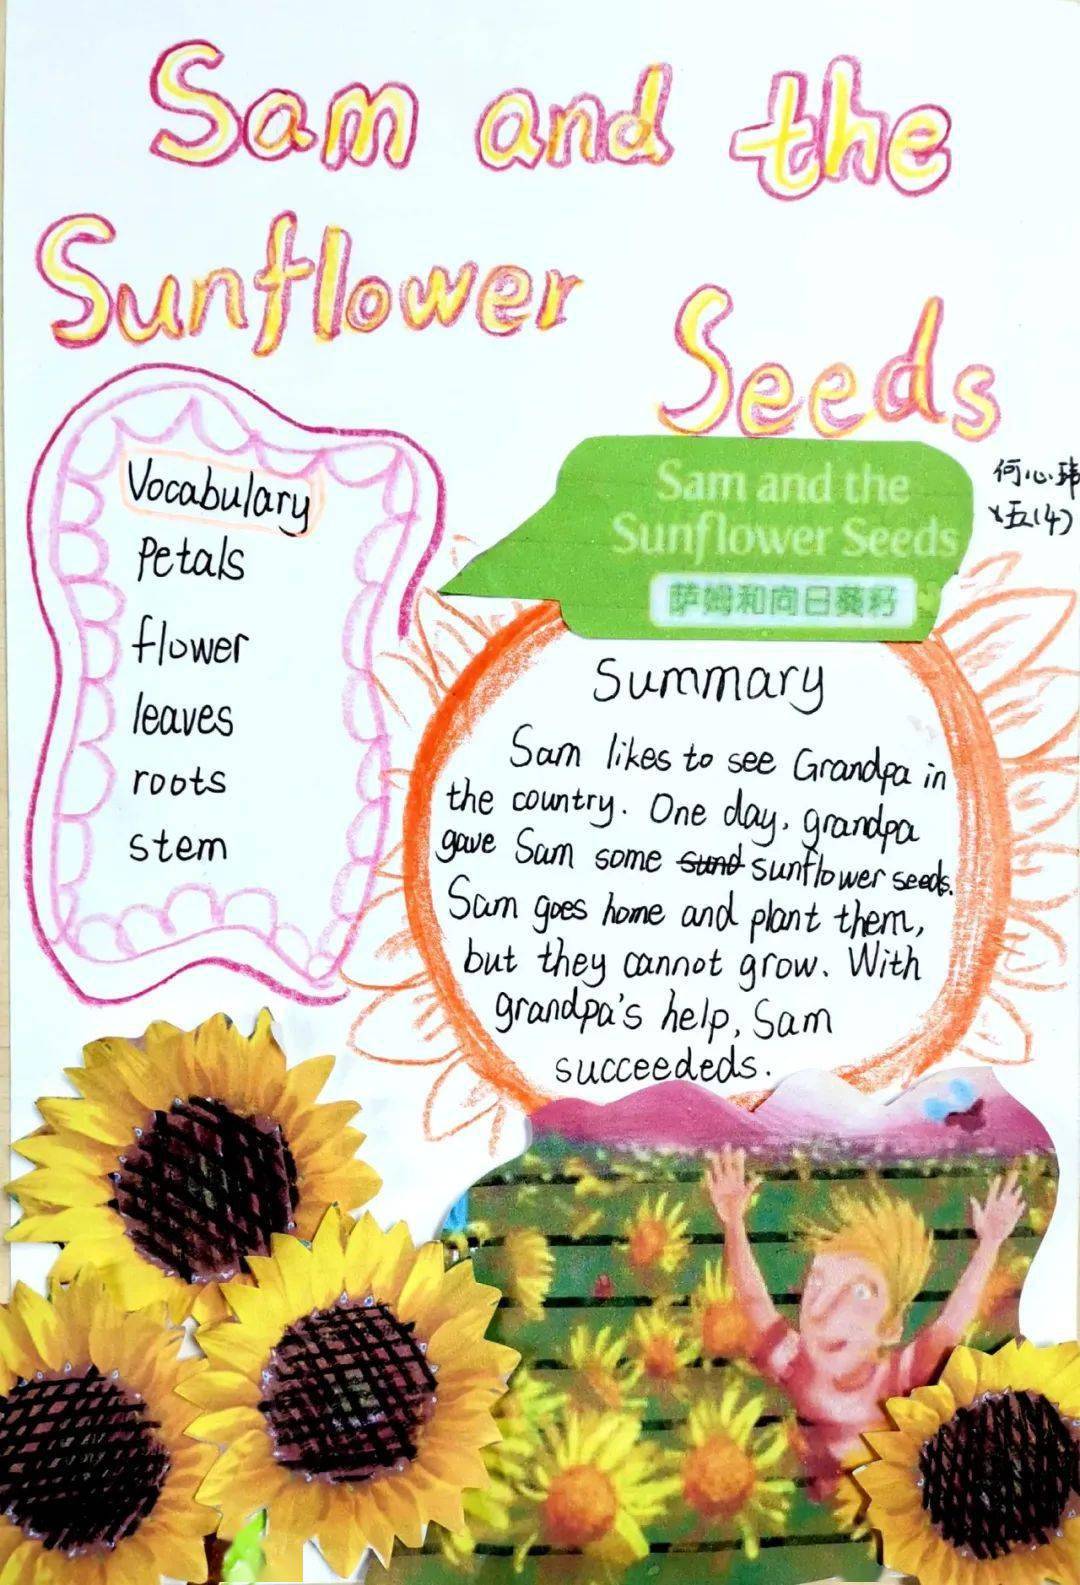 Sam and the
Sunflower Seeds
Sam and the
Sunflower Seeds
萨姆和向日葵籽
何心玮
五(4)
Vocabulary
Petals
flower
leaves
roots
stem
Summary
Sam likes to see Grandpa in
the country. One day, grandpa
gave Sam some sund sunflower seeds.
Sam goes home and plant them,
but they cannot grow. With
grandpa's help, Sam
succeededs.